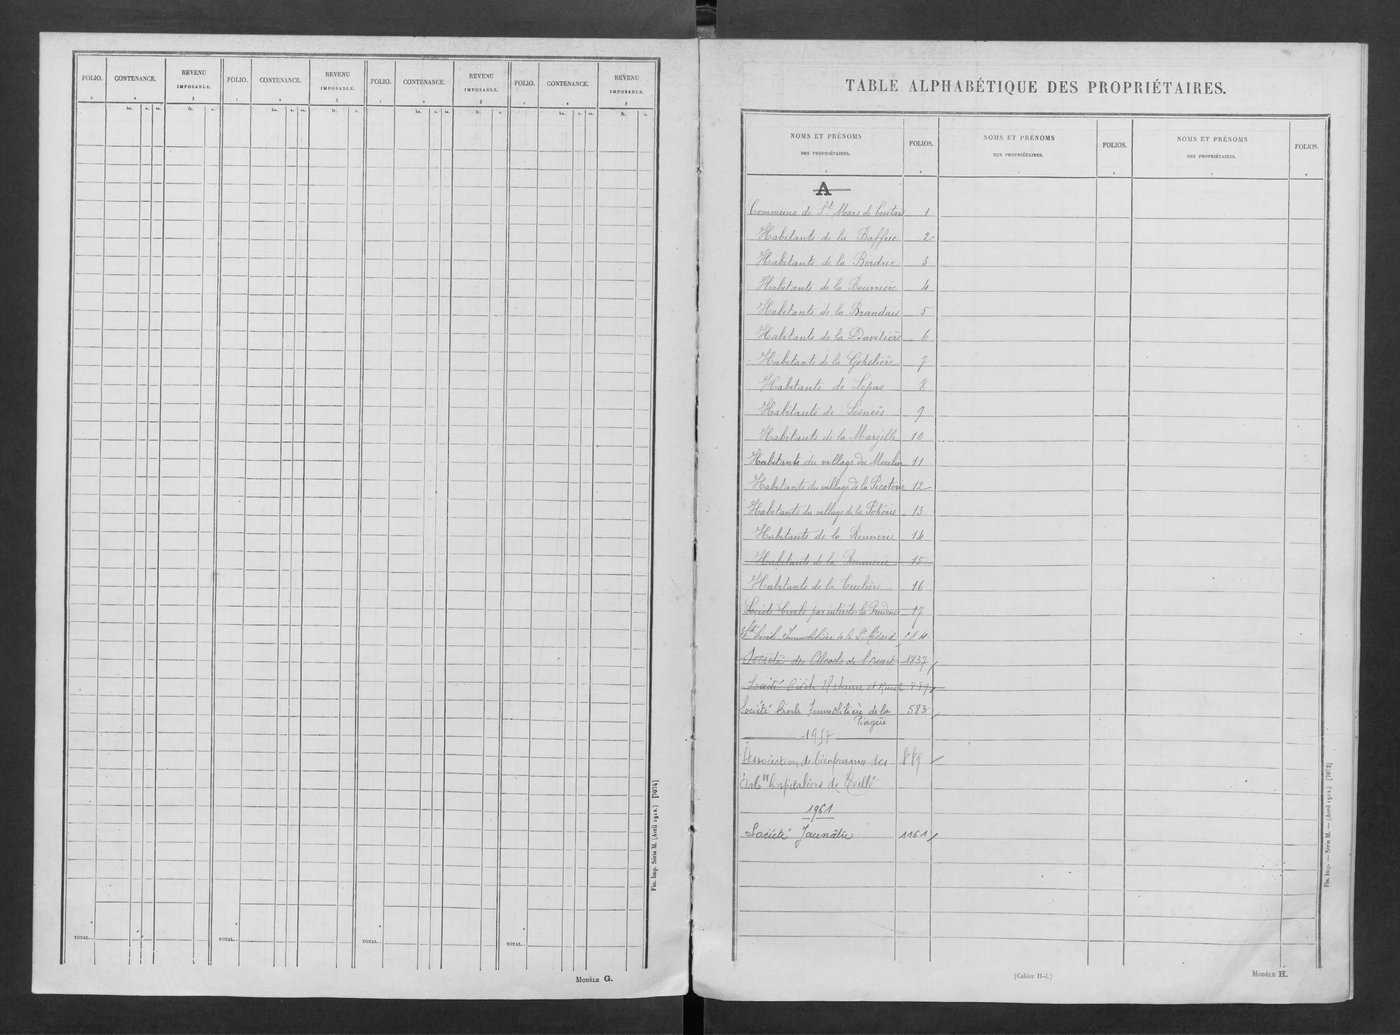 FOLIO. CONTENANCE. REVENU IMPOSABLE. FOLIO. CONTENANCE. REVENU IMPOSABLE. FOLIO. CONTENANCE. REVENU IMPOSABLE. FOLIO. CONTENANCE. REVENU IMPOSABLE.
1 2 3 1 2 3 1 2 3 1 2 3
ha. a. ca. fr. c. ha. a. ca. fr. c. ha. a. ca. fr. c. ha. a. ca. fr. c.
TOTAL.. TOTAL.. TOTAL.. TOTAL..
Fin. Imp. Série M. (Avril 1912.) [7074]
MODÈLE G.
TABLE ALPHABÉTIQUE DES PROPRIÉTAIRES.
NOMS ET PRÉNOMS DES PROPRIÉTAIRES. FOLIOS. NOMS ET PRÉNOMS DES PROPRIÉTAIRES. FOLIOS. NOMS ET PRÉNOMS DES PROPRIÉTAIRES. FOLIOS.
A
Commune de St Mars de Coutais 1
Habitants de la Baffrie 2
Habitants de la 3
Habitants de la Bourrière 4
Habitants de la Brandais 5
Habitants de la Davitière 6
Habitants de la 7
Habitants de Lépas 8
Habitants de 9
Habitants de la 10
Habitants du village du Moulin 11
Habitants du village de la 12
Habitants du village de la 13
Habitants de la 14
Habitants de la 15
Habitants de la 16
Société Civile 17
Sté Civile Immobilière de la
Société des de 1837
Société Civile Urbaine et Rurale 837
Société Civile Immobilière de la 583
1957
Association de Bienfaisance des 889
hospitaliers de Teillé
1961
Société 1161
Fin. Imp. — Série M. — (Avril 1912.) [7072]
(Cahier H-I.)
MODÈLE H.